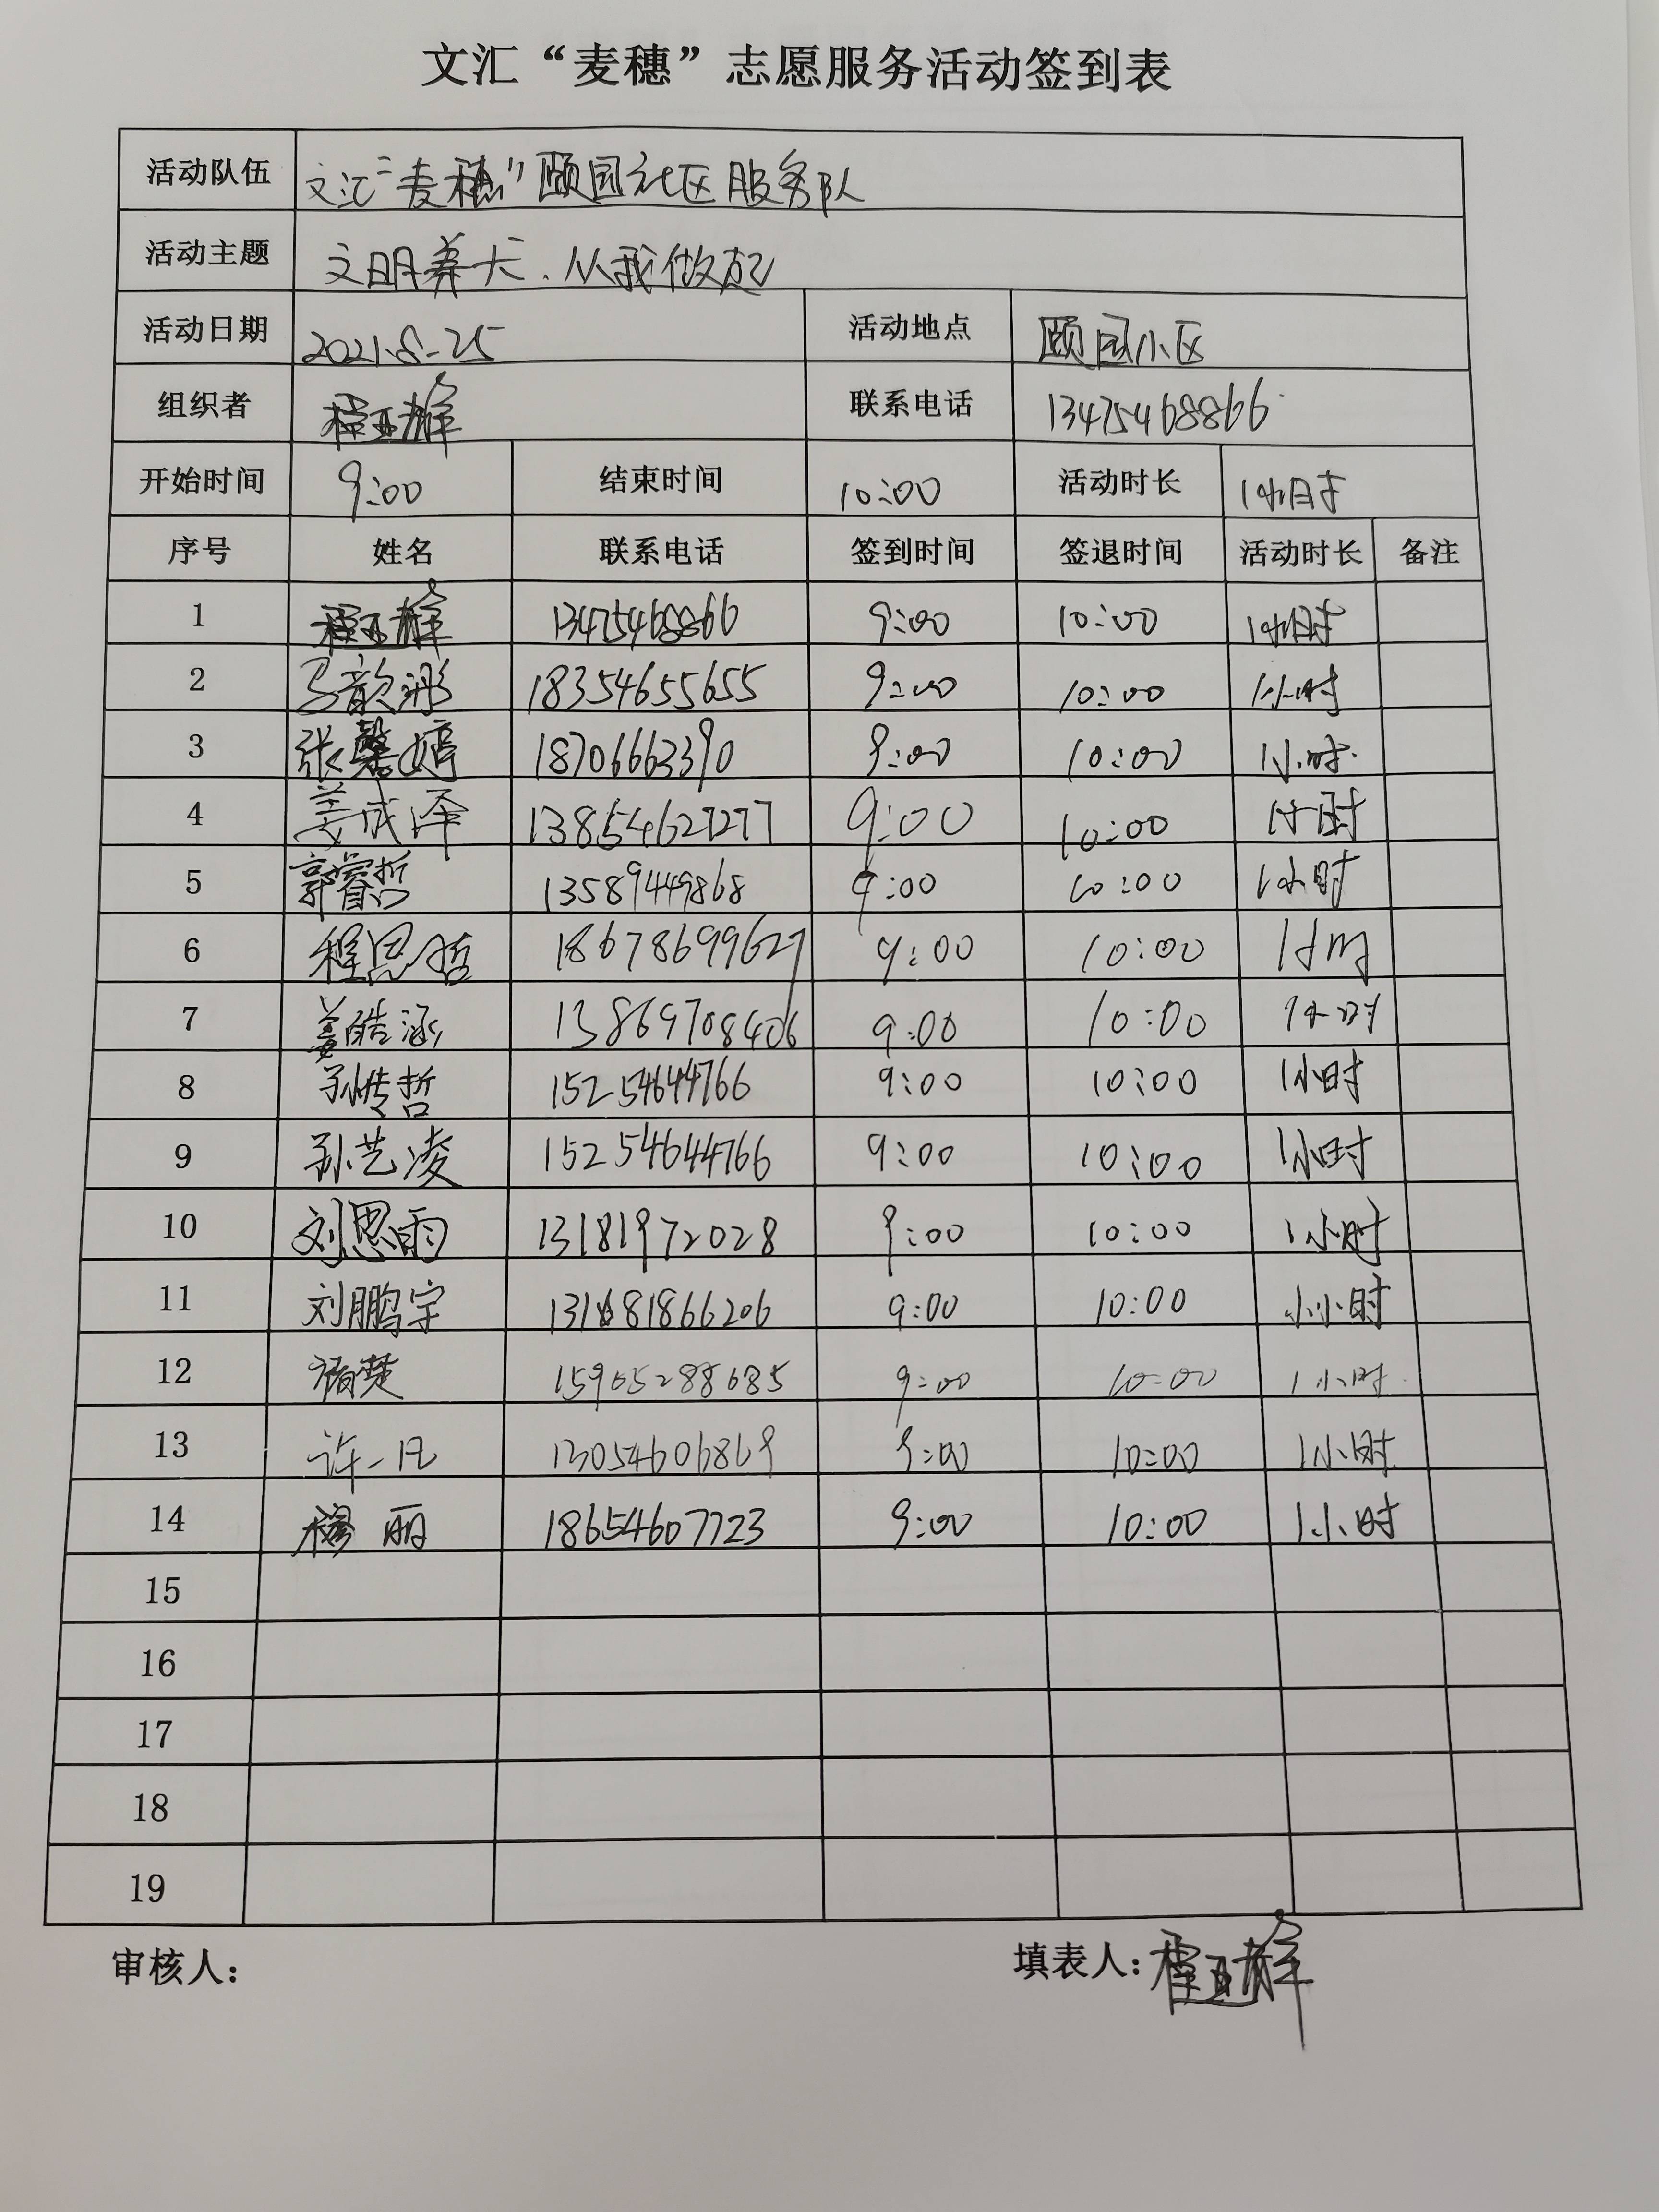 文汇“麦穗”志愿服务活动签到表
活动队伍 文汇“麦穗”颐园社区服务队
活动主题 文明养犬.从我做起
活动日期 2021.8-25 活动地点 颐园小区
组织者 联系电话 13475468866
开始时间 9:00 结束时间 10:00 活动时长 1小时
序号 姓名 联系电话 签到时间 签退时间 活动时长 备注
1 13475468866 9:00 10:00 1小时
2 马韵彤 18354655655 9:00 10:00 1小时
3 张馨婷 18706663390 9:00 10:00 1小时.
4 姜成泽 13854627277 9:00 10:00 1小时
5 郭睿哲 13589449868 9:00 10:00 1小时
6 程思哲 18678699627 9:00 10:00 1小时
7 姜皓涵 13869708406 9:00 10:00 1小时
8 孙传哲 15254644766 9:00 10:00 1小时
9 孙艺凌 15254644766 9:00 10:00 1小时
10 刘思雨 13181972028 9:00 10:00 1小时
11 刘鹏宇 9:00 10:00 1小时
12 15905288685 9:00 10:00 1小时.
13 许一凡 13054606869 9:00 10:00 1小时
14 穆丽 18654607723 9:00 10:00 1小时
15
16
17
18
19
审核人： 填表人：